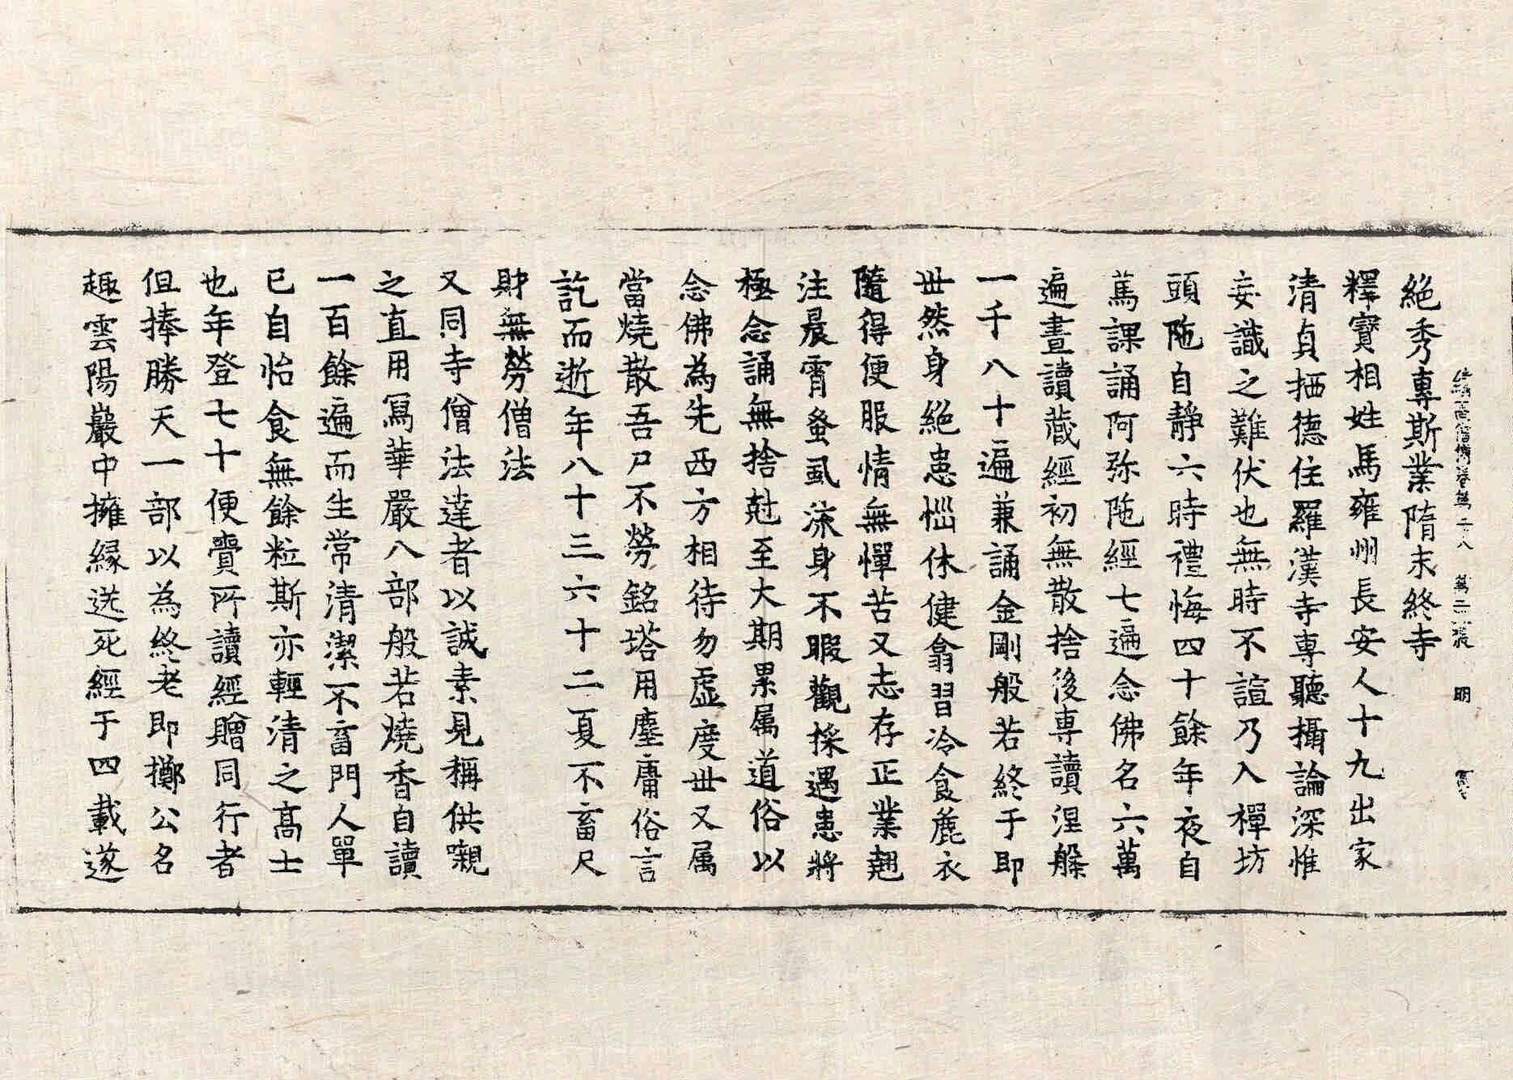 絕秀專斯業隋末終寺
續高僧傳卷第二十八 第二張 明
釋寶相姓馬雍州長安人十九出家
清貞栖德住羅漢寺專聽攝論深惟
妄識之難伏也無時不諠乃入禪坊
頭陁自靜六時禮悔四十餘年夜自
篤課誦阿弥陁經七遍念佛名六萬
遍晝讀藏經初無散捨後專讀涅槃
一千八十遍兼誦金剛般若終于即
世然身絕患惱休健翕習冷食麁衣
隨得便服情無憚苦又志存正業翹
注晨霄蚤虱流身不暇觀採遇患將
極念誦無捨尅至大期累属道俗以
念佛為先西方相待勿虛度世又属
當燒散吾尸不勞銘塔用塵庸俗言
訖而逝年八十三六十二夏不畜尺
財無勞僧法
又同寺僧法達者以誠素見稱供嚫
之直用寫華嚴八部般若燒香自讀
一百餘遍而生常清潔不畜門人單
已自怡食無餘粒斯亦輕清之高士
也年登七十便賷所讀經贈同行者
但捧勝天一部以為終老即擲公名
趣雲陽巖中擁緣送死經于四載遂